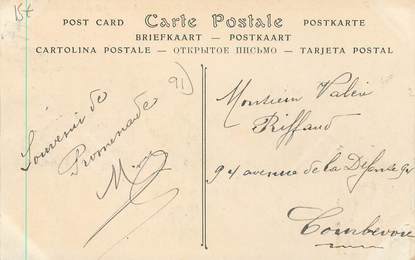 15+
POST CARD Carte Postale POSTKARTE
BRIEFKAART — POSTKAART
CARTOLINA POSTALE — ОТКРЫТОЕ ПИСЬМО — TARJETA POSTAL
Souvenir de
Promenade
91)
Monsieur Valère
Riffaud
94 avenue de la Défense
Courbevoie